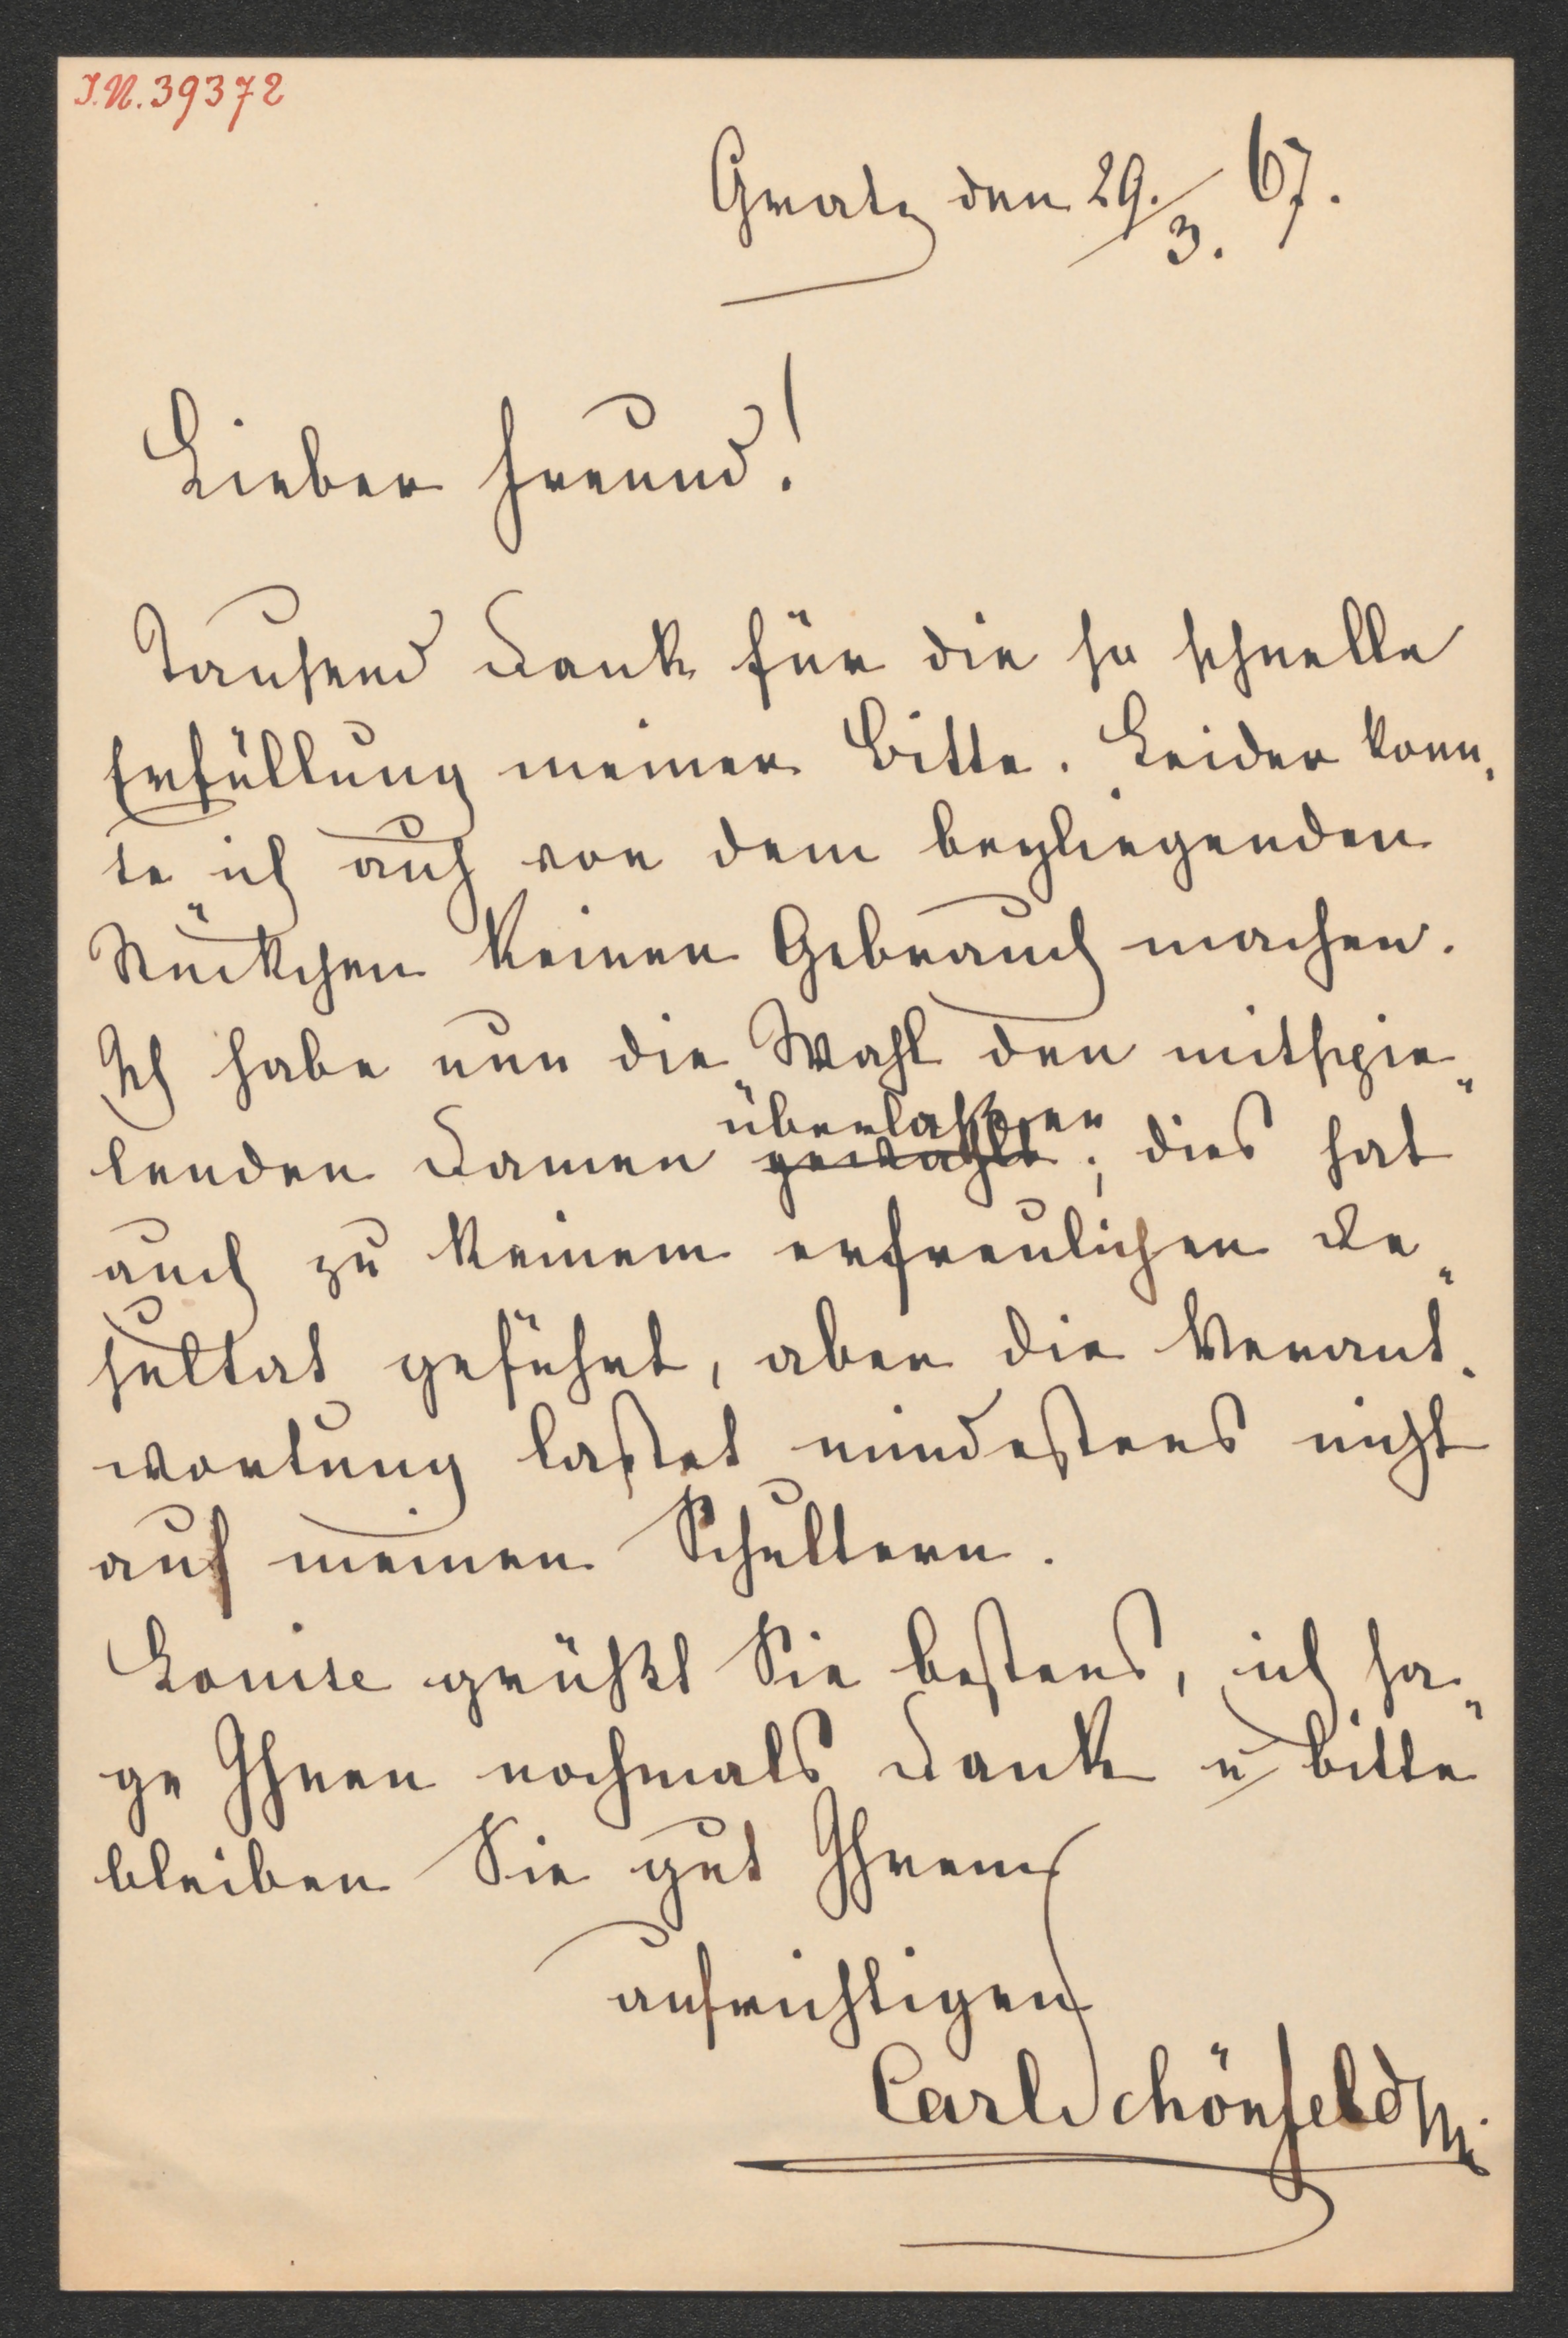 I.N. 39372
Gratz den 29./3. 67.
Lieber Freund!
Tausend Dank für die so schnelle
Erfüllung meiner Bitte. Leider konn„
te ich auch von dem beyliegenden
Stückchen keinen Gebrauch machen.
Ich habe nun die Wahl den mitspie„
lenden Damen gewählt überlassen; dies hat
auch zu keinem erfreulichen Re„
sultat geführt, aber die Verant„
wortung lastet mindestens nicht
auf meinen Schultern.
Louise grüßt Sie bestens, ich sa„
ge Ihnen nochmals Dank u bitte
bleiben Sie gut Ihrem
aufrichtigen
Carl Schönfeld